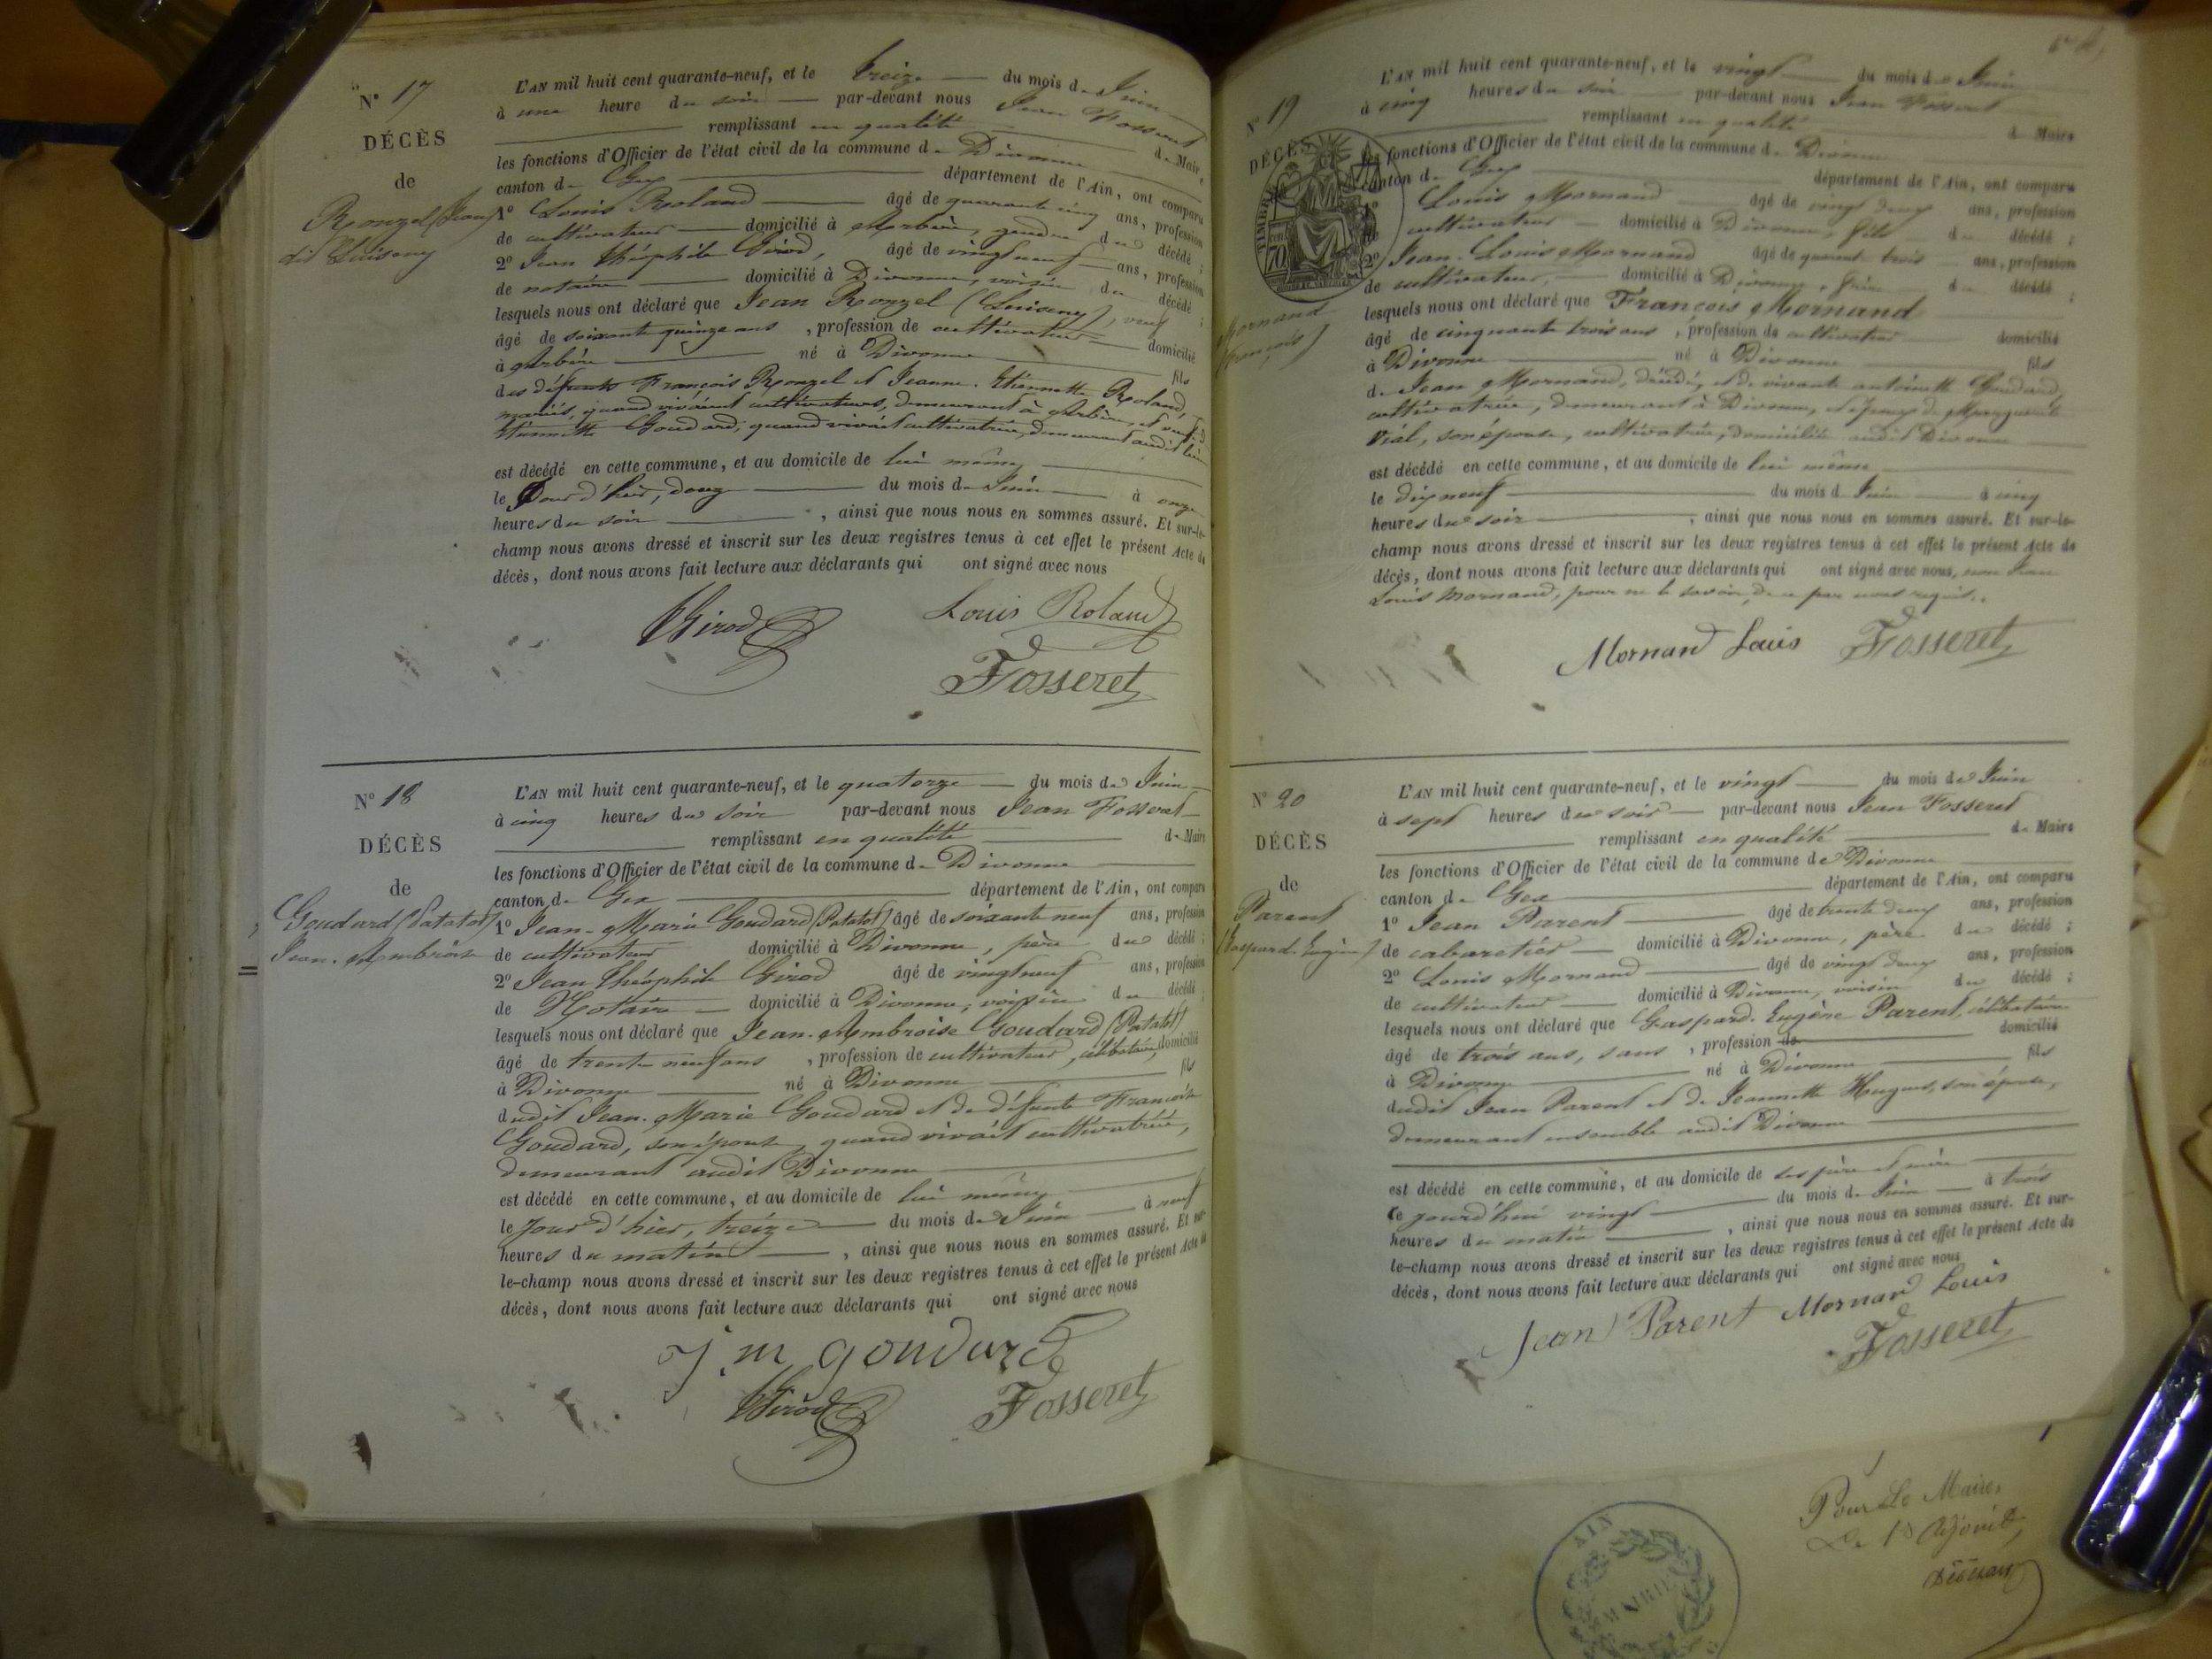 N° 17
DÉCÈS
de
Ronzel (Jean)
dit
L'AN mil huit cent quarante-neuf, et le treize du mois de Juin
à une heure du soir par-devant nous Jean Fosseret
remplissant en qualité de Maire
les fonctions d'Officier de l'état civil de la commune de Divonne
canton de Gex département de l'Ain, ont comparu
1° Louis Roland âgé de quarante cinq ans, profession
de cultivateur domicilié à Arbère, gendre du décédé ;
2° Jean Théophile Girod, âgé de vingt neuf ans, profession
de notaire domicilié à Divonne, voisin du décédé ;
lesquels nous ont déclaré que Jean Ronzel veuf
âgé de soixante quinze ans, profession de cultivateur domicilié
à Arbère né à Divonne fils
des défunts François Ronzel et Jeanne Etiennette Roland,
mariés, quand vivaient cultivateurs, demeurant à Arbère, et veuf
Etiennette Goudard, quand vivait cultivatrice, demeurant audit lieu
est décédé en cette commune, et au domicile de lui même
le Jour d'hier, douze du mois de Juin à onze
heures du soir, ainsi que nous nous en sommes assuré. Et sur-le-
champ nous avons dressé et inscrit sur les deux registres tenus à cet effet le présent Acte de
décès, dont nous avons fait lecture aux déclarants qui ont signé avec nous
Girod Louis Roland
Fosseret
N° 18
DÉCÈS
de
Goudard (Patatot)
Jean-Ambroise
L'AN mil huit cent quarante-neuf, et le quatorze du mois de Juin
à cinq heures du soir par-devant nous Jean Fosseret
remplissant en qualité de Maire
les fonctions d'Officier de l'état civil de la commune de Divonne
canton de Gex département de l'Ain, ont comparu
1° Jean-Marie Goudard (Patatot) âgé de soixante neuf ans, profession
de cultivateur domicilié à Divonne, père du décédé ;
2° Jean Théophile Girod âgé de vingt neuf ans, profession
de Notaire domicilié à Divonne, voisin du décédé
lesquels nous ont déclaré que Jean-Ambroise Goudard (Patatot)
âgé de trente neuf ans, profession de cultivateur, célibataire, domicilié
à Divonne né à Divonne fils
dudit Jean-Marie Goudard et de défunte Françoise
Goudard, son épouse, quand vivait cultivatrice,
demeurant audit Divonne
est décédé en cette commune, et au domicile de lui même
le Jour d'hier, treize du mois de Juin à neuf
heures du matin, ainsi que nous nous en sommes assuré. Et sur-
le-champ nous avons dressé et inscrit sur les deux registres tenus à cet effet le présent Acte de
décès, dont nous avons fait lecture aux déclarants qui ont signé avec nous
j. m goudard
Girod Fosseret
N° 19
DÉCÈS
TIMBRE
70
Mornand
(François)
L'AN mil huit cent quarante-neuf, et le vingt du mois de Juin
à cinq heures du soir par-devant nous Jean Fosseret
remplissant en qualité de Maire
les fonctions d'Officier de l'état civil de la commune de Divonne
canton de Gex département de l'Ain, ont comparu
1° Louis Mornand âgé de vingt deux ans, profession
de cultivateur domicilié à Divonne, fils du décédé ;
2° Jean-Louis Mornand âgé de quarante trois ans, profession
de cultivateur, domicilié à Divonne, frère du décédé ;
lesquels nous ont déclaré que François Mornand
âgé de cinquante trois ans, profession de cultivateur domicilié
à Divonne né à Divonne fils
de Jean Mornand, décédé, et de vivante antoinette Goudard,
cultivatrice, demeurant à Divonne, et époux de Marguerite
Vial, son épouse, cultivatrice, domiciliée audit Divonne
est décédé en cette commune, et au domicile de lui même
le dix neuf du mois de Juin à cinq
heures du soir, ainsi que nous nous en sommes assuré. Et sur-le-
champ nous avons dressé et inscrit sur les deux registres tenus à cet effet le présent Acte de
décès, dont nous avons fait lecture aux déclarants qui ont signé avec nous, non Jean
Louis Mornand, pour ne le savoir, de ce par nous requis.
Mornand Louis Fosseret
N° 20
DÉCÈS
de
Parent
(Gaspard-Eugène)
L'AN mil huit cent quarante-neuf, et le vingt du mois de Juin
à sept heures du soir par-devant nous Jean Fosseret
remplissant en qualité de Maire
les fonctions d'Officier de l'état civil de la commune de Divonne
canton de Gex département de l'Ain, ont comparu
1° Jean Parent âgé de trente deux ans, profession
de cabaretier domicilié à Divonne, père du décédé ;
2° Louis Mornand âgé de vingt deux ans, profession
de cultivateur domicilié à Divonne, voisin du décédé ;
lesquels nous ont déclaré que Gaspard-Eugène Parent, célibataire
âgé de trois ans, sans, profession de domicilié
à Divonne né à Divonne fils
dudit Jean Parent et de Jeannette Hugues, son épouse,
demeurant ensemble audit Divonne
est décédé en cette commune, et au domicile de ses père et mère
ce jourd'hui vingt du mois de Juin à trois
heures du matin, ainsi que nous nous en sommes assuré. Et sur-
le-champ nous avons dressé et inscrit sur les deux registres tenus à cet effet le présent Acte de
décès, dont nous avons fait lecture aux déclarants qui ont signé avec nous
Jean Parent Mornand Louis
Fosseret
Pour Le Maire,
AIN
MAIRIE